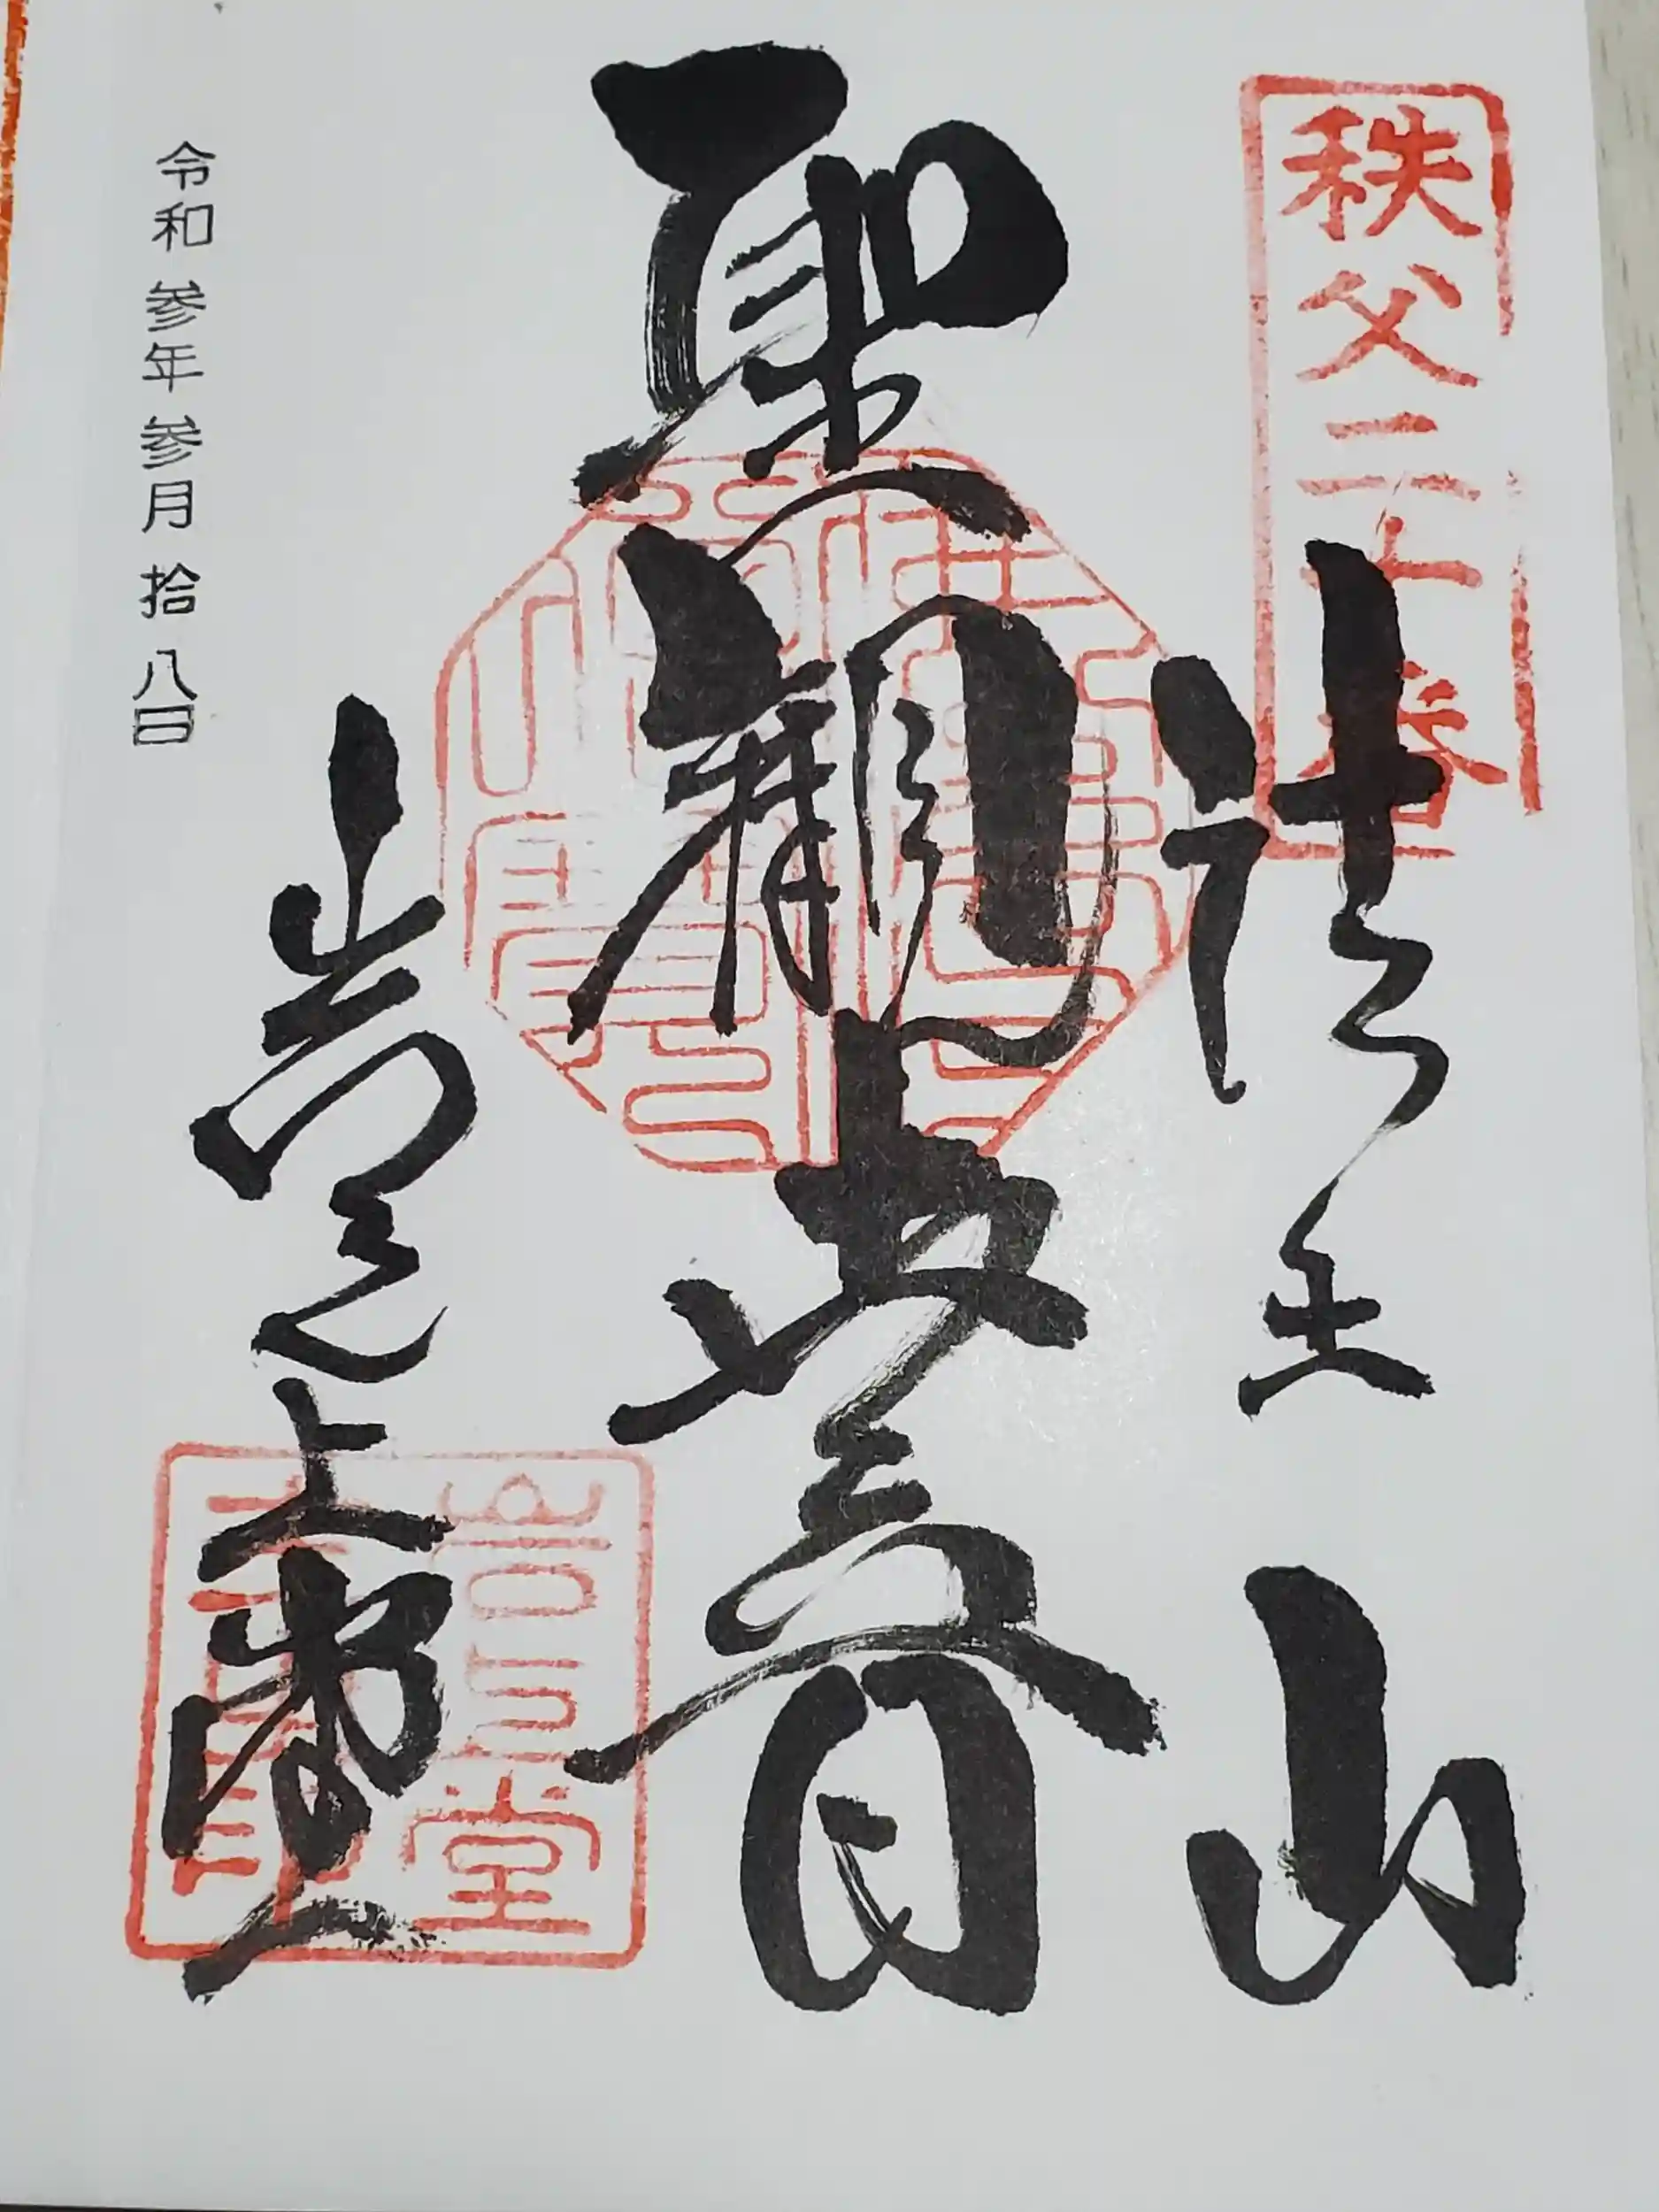 秩父二十番
法王山
聖観世音
岩之上堂
令和参年参月拾八日